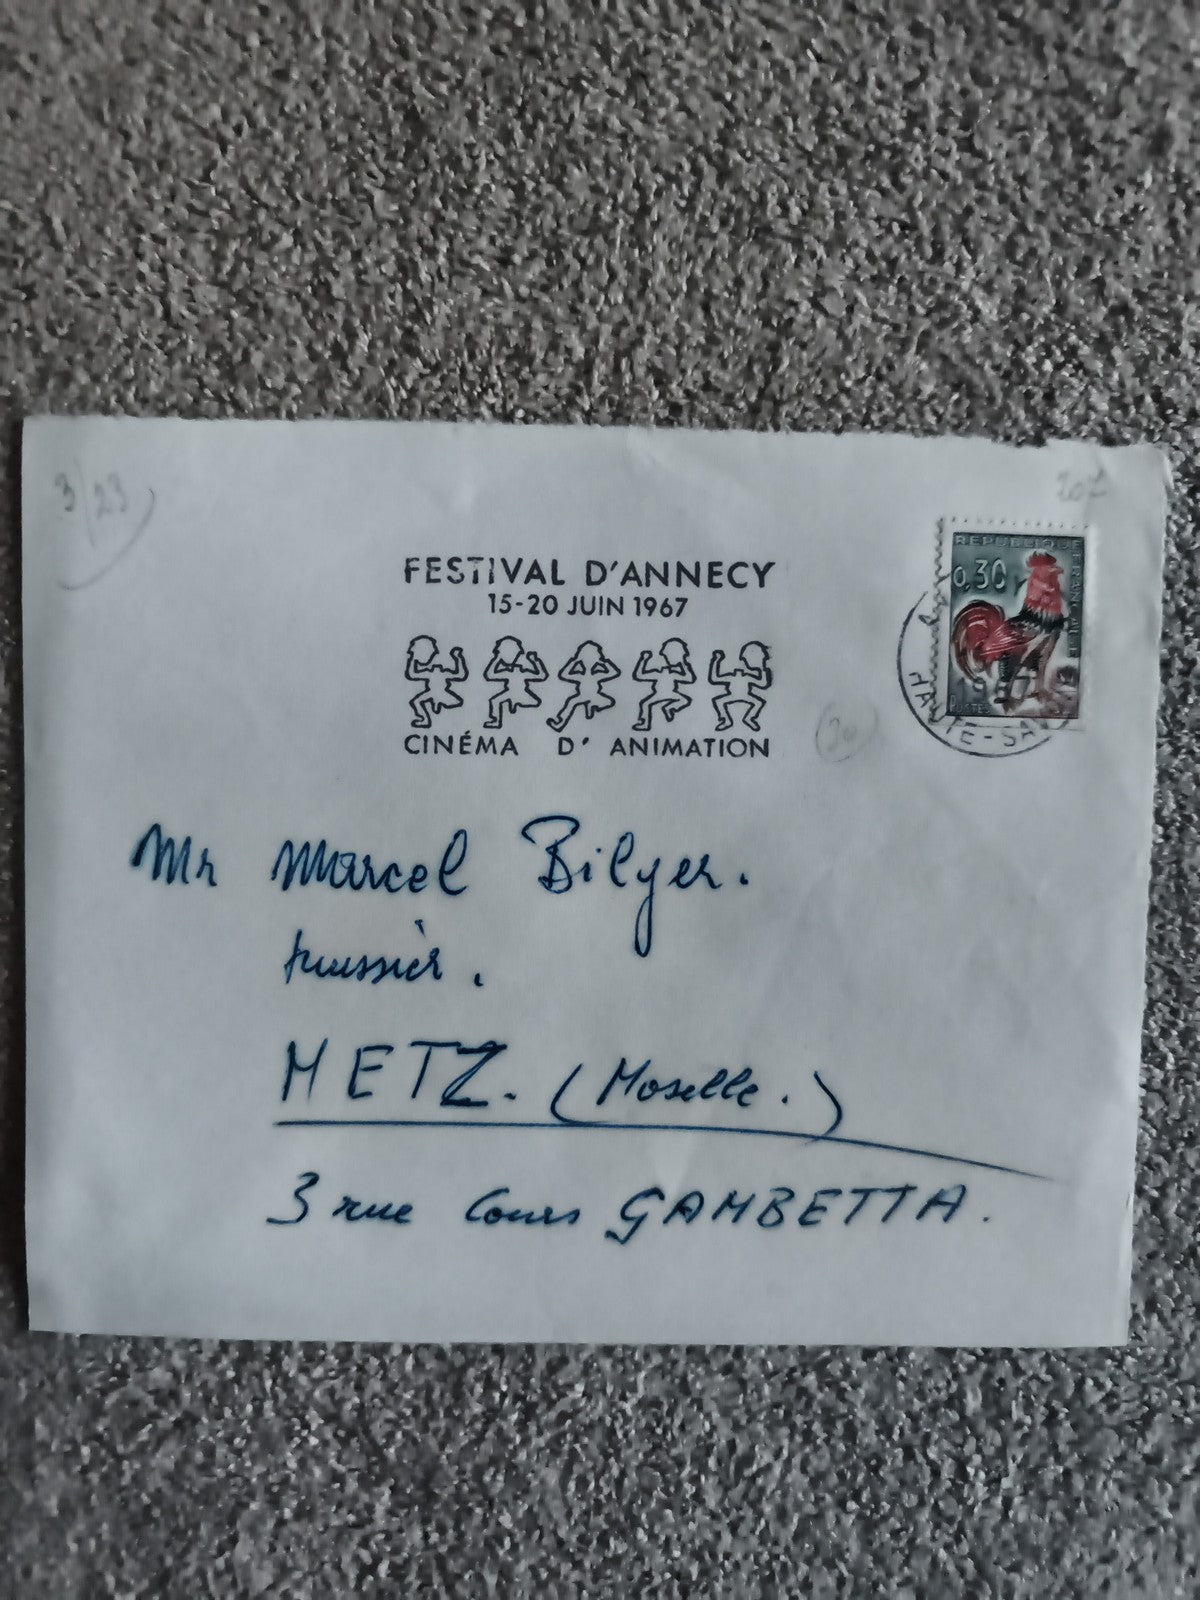 3/23
FESTIVAL D'ANNECY
15-20 JUIN 1967
CINÉMA D' ANIMATION
REPUBLIQUE FRANCAISE
0,30
POSTES
HAUTE-SAV
(30)
Mr Marcel Bilger.
huissier.
METZ. (Moselle.)
3 rue Cours GAMBETTA.